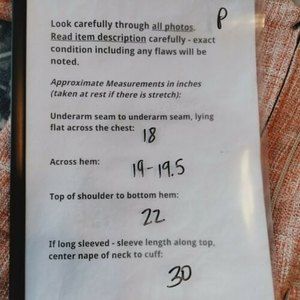 P
Look carefully through all photos.
Read item description carefully - exact
condition including any flaws will be
noted.
Approximate Measurements in inches
(taken at rest if there is stretch):
Underarm seam to underarm seam, lying
flat across the chest:
18
Across hem:
19-19.5
Top of shoulder to bottom hem:
22
If long sleeved - sleeve length along top,
center nape of neck to cuff:
30